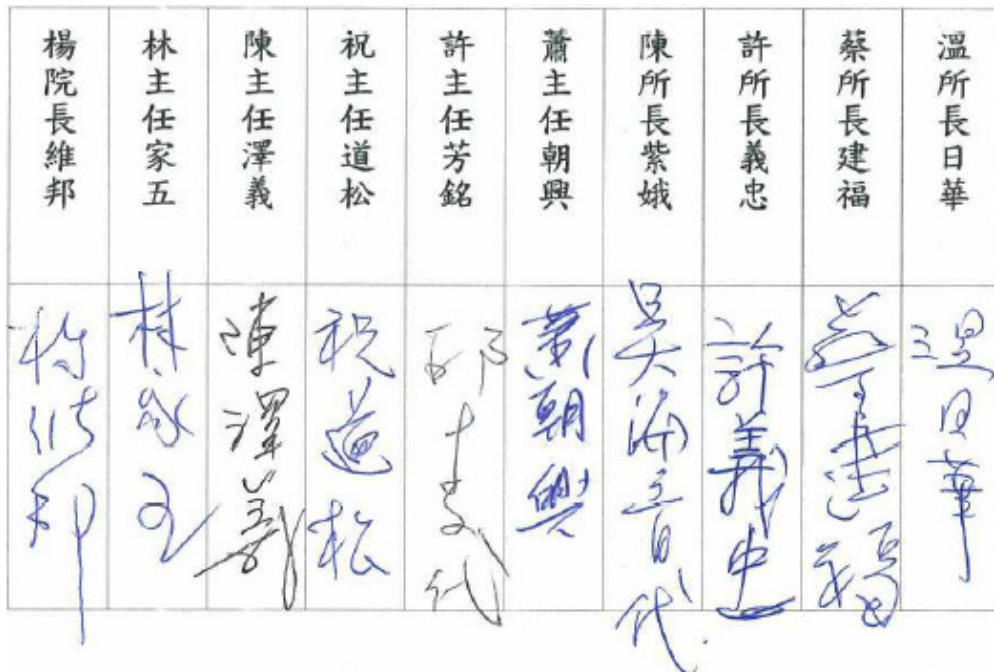 溫所長日華
蔡所長建福
許所長義忠
陳所長紫娥
蕭主任朝興
許主任芳銘
祝主任道松
陳主任澤義
林主任家五
楊院長維邦
溫日華
蔡建福
許義忠
代
蕭朝興
代
祝道松
陳澤義
林家五
楊維邦